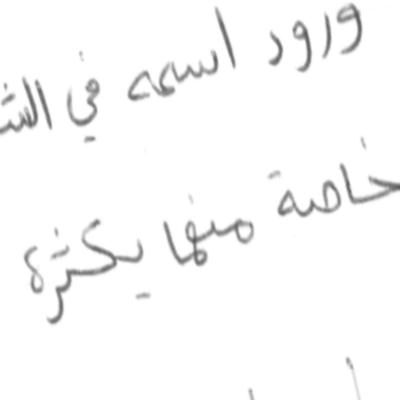 ورود اسمه في الشـ
خاصة منها بكثرة